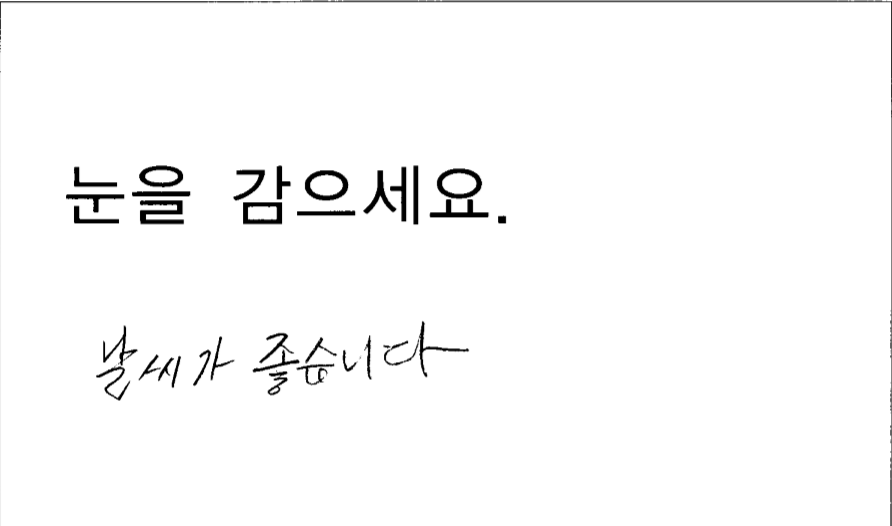 눈을 감으세요.
날씨가 좋습니다